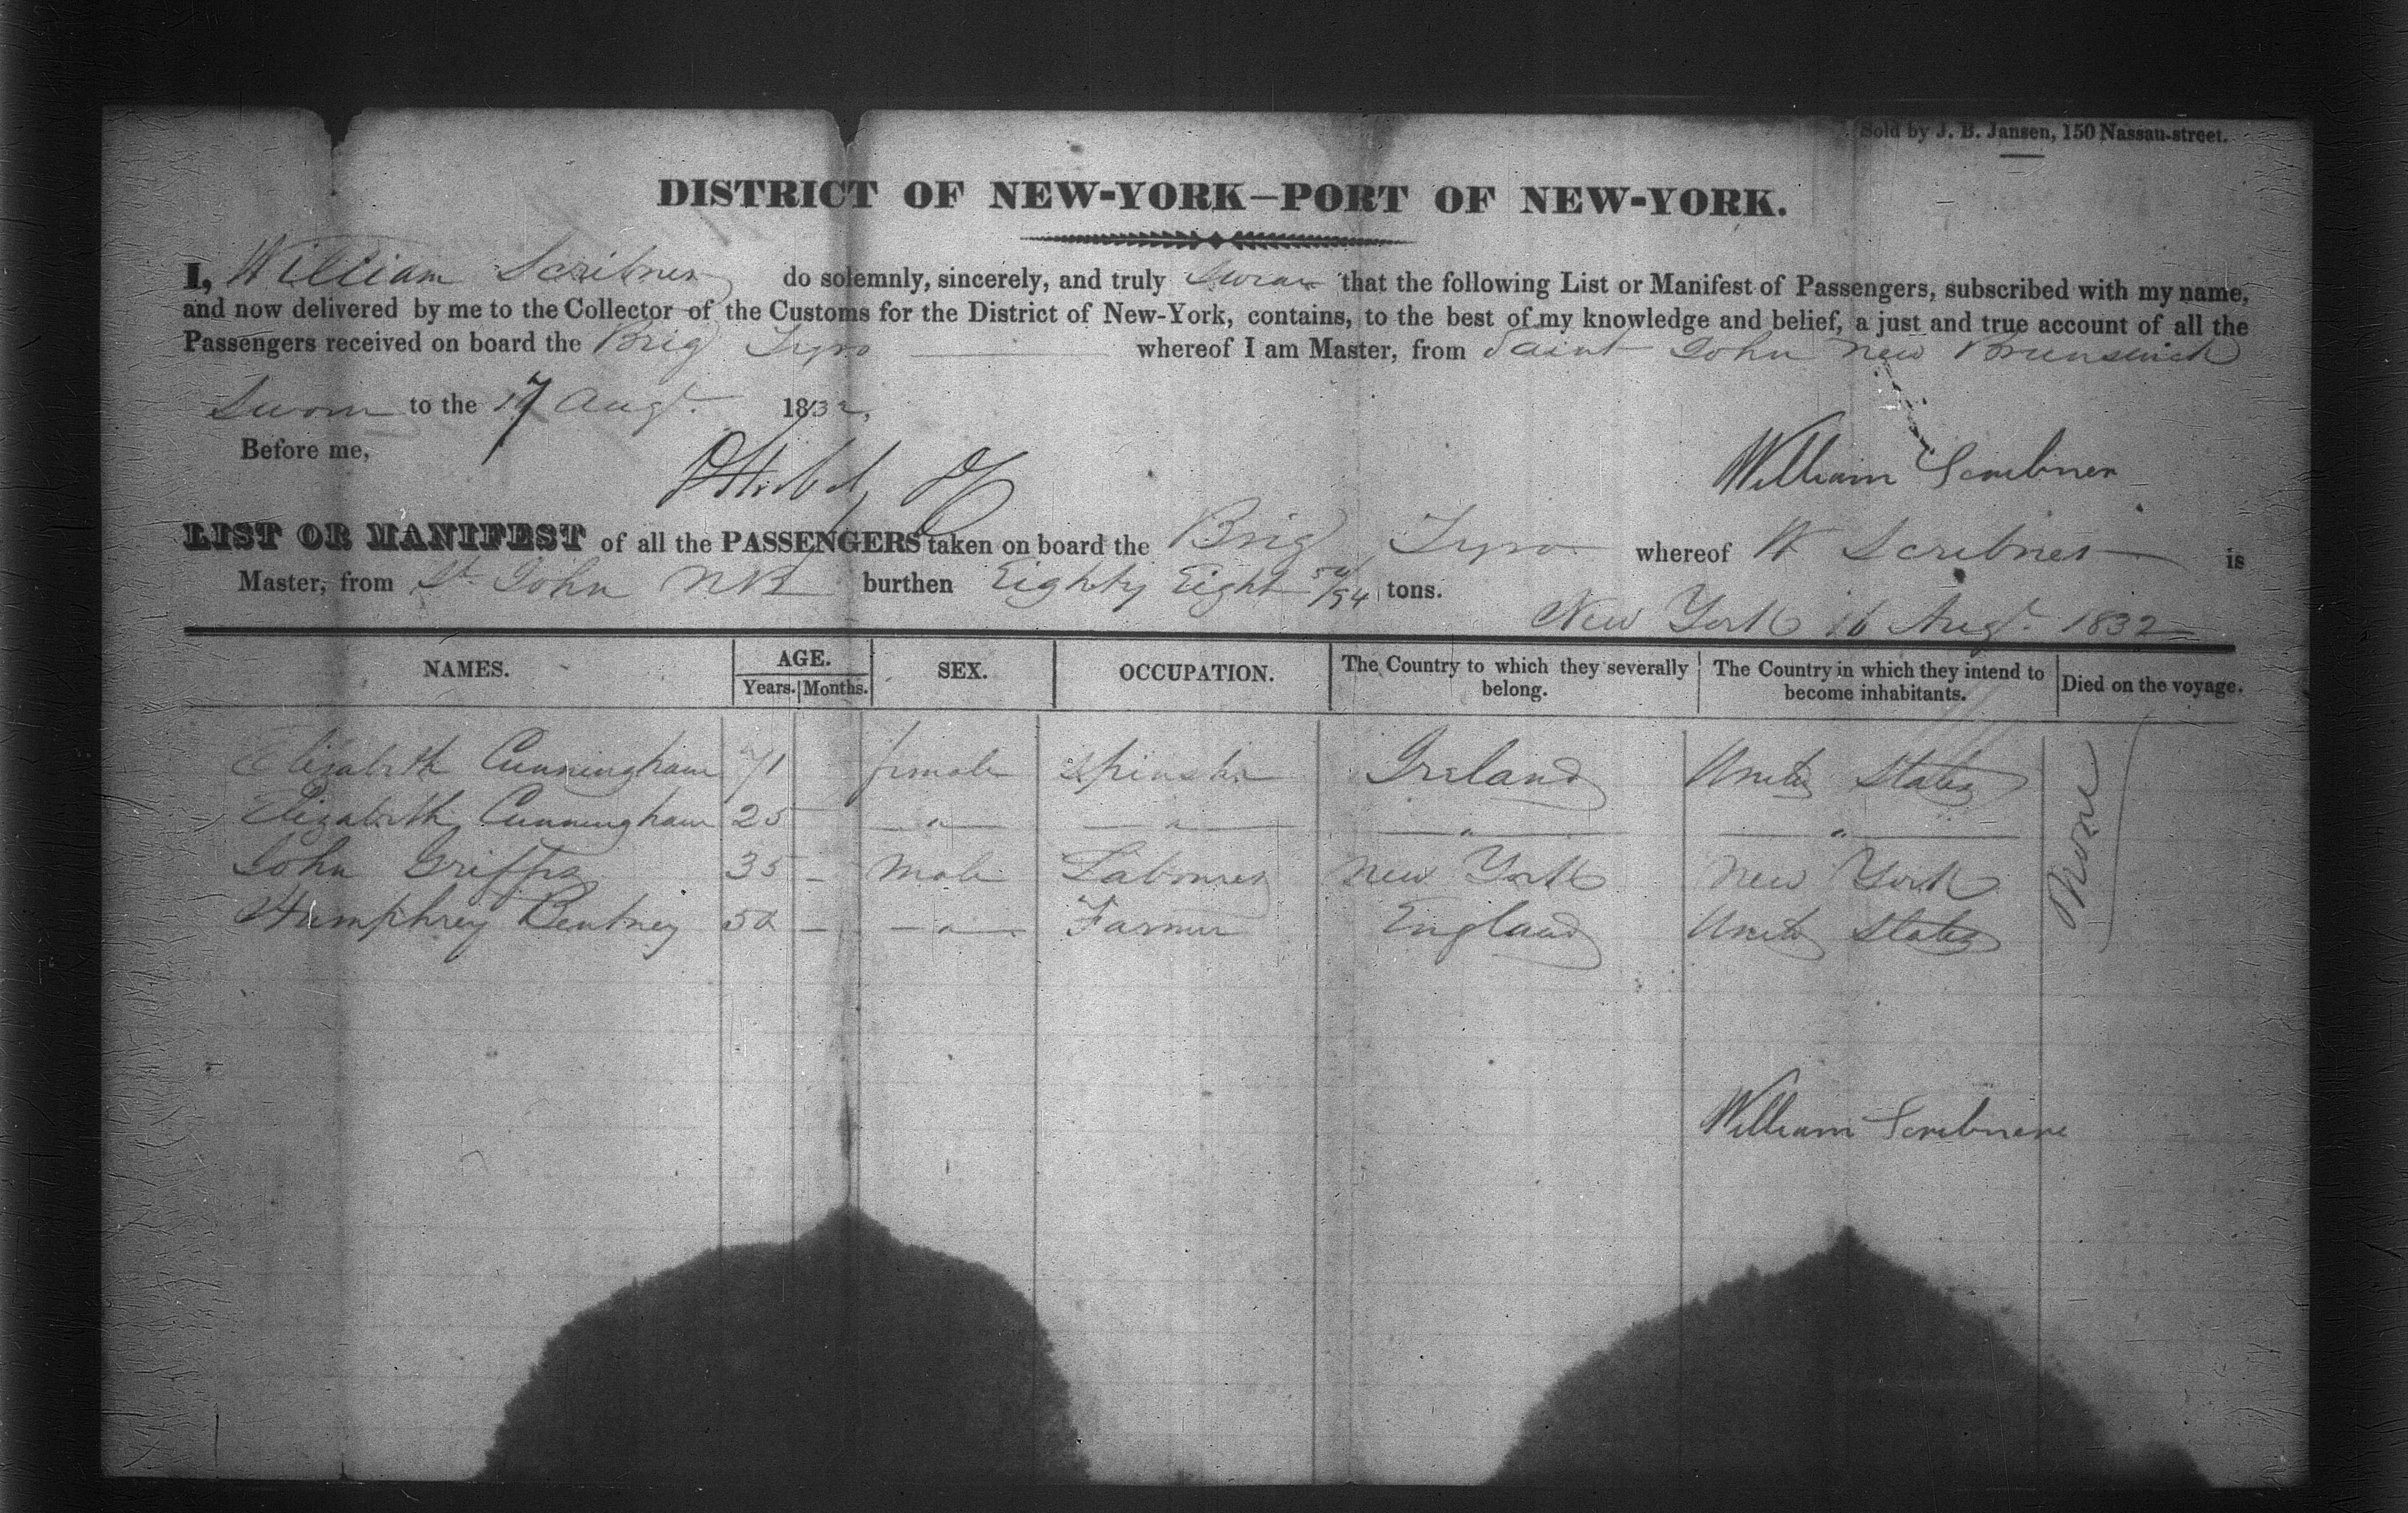 Sold by J. B. Jansen, 150 Nassau-street.
DISTRICT OF NEW-YORK—PORT OF NEW-YORK.
I, William Scribner do solemnly, sincerely, and truly swear that the following List or Manifest of Passengers, subscribed with my name,
and now delivered by me to the Collector of the Customs for the District of New-York, contains, to the best of my knowledge and belief, a just and true account of all the
Passengers received on board the Brig Tyro whereof I am Master, from Saint John New Brunswick
Sworn to the 17 Augt. 1832,
Before me,
William Scribner
LIST OR MANIFEST of all the PASSENGERS taken on board the Brig Tyro whereof W Scribner is
Master, from St. John NB burthen Eighty Eight tons.
New York 16 Augt. 1832
NAMES. AGE. SEX. OCCUPATION. The Country to which they severally belong. The Country in which they intend to become inhabitants. Died on the voyage.
Years. Months.
Elizabeth Cunningham 71 female Spinster Ireland United States None
Elizabeth Cunningham 25 — " — — " — — " — — " —
John 35 — male Labourer New York New York
Humphrey Bentney 50 — — " — Farmer England United States
William Scribner